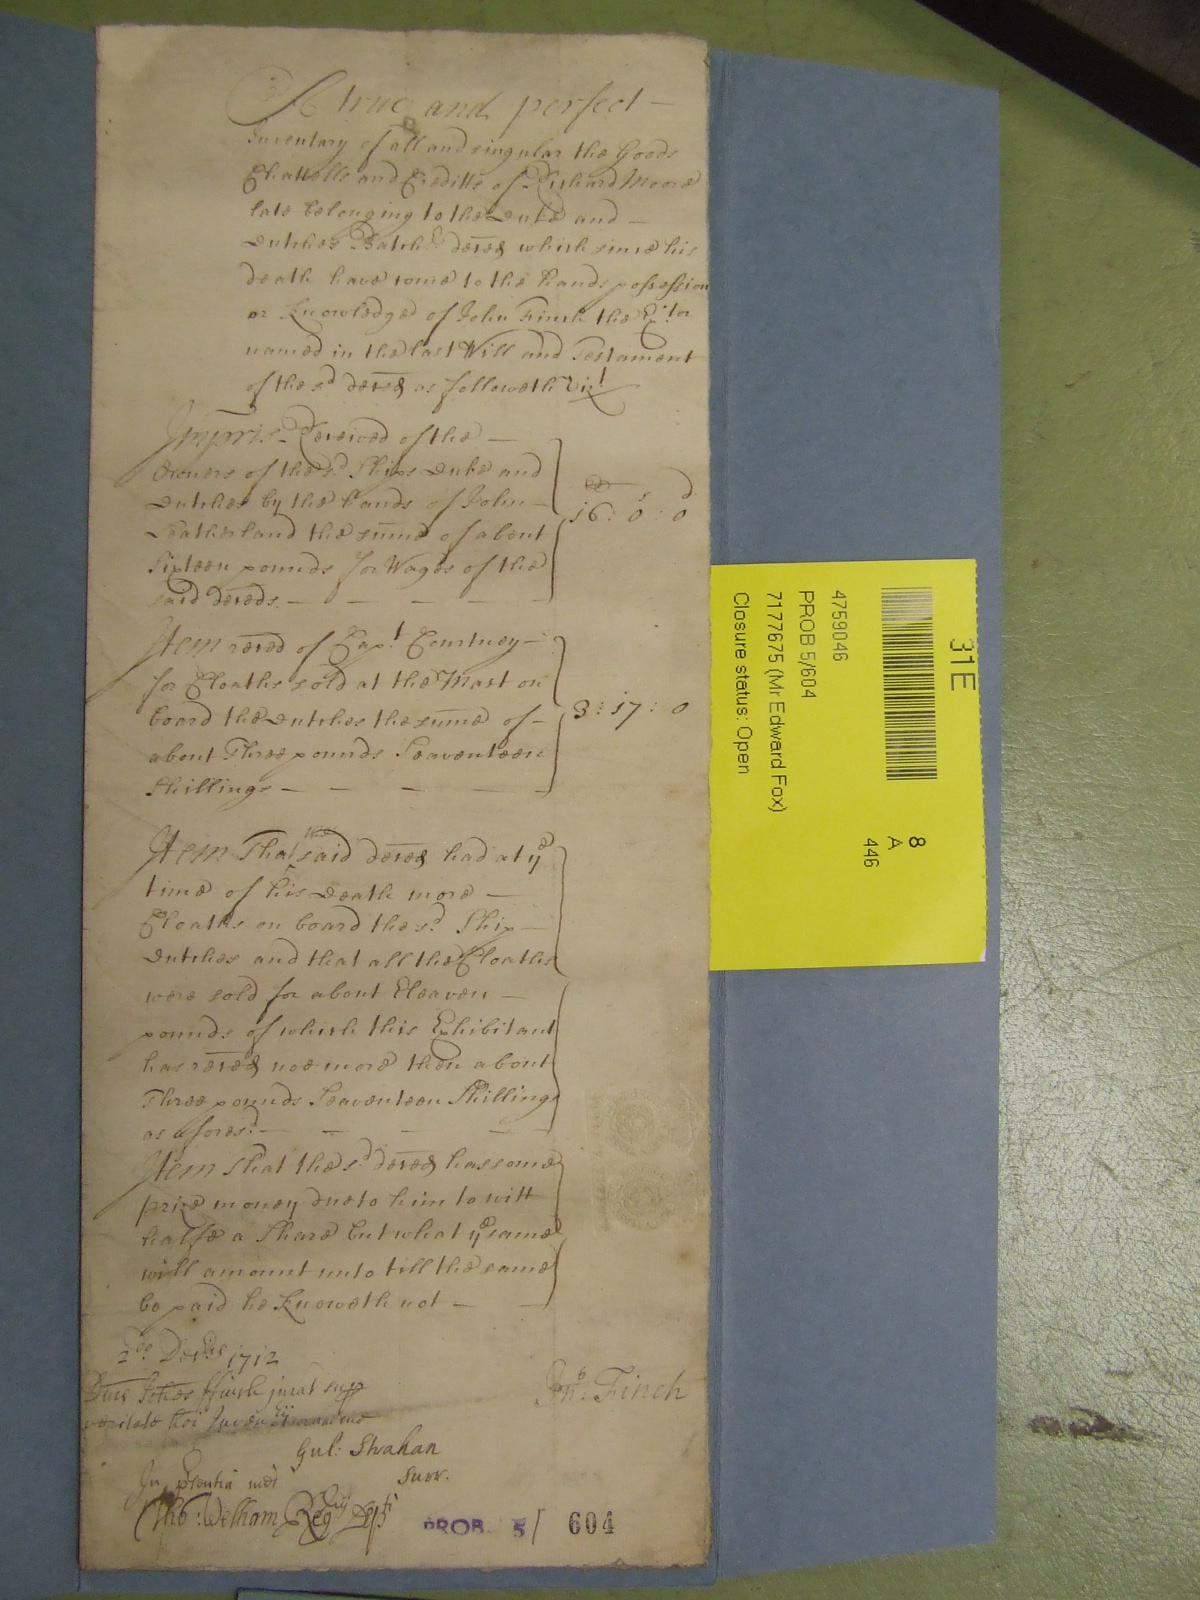 A true and perfect
Inventory of all and singular the Goods
Chattells and Creditts of Richard Moore
late belonging to the Duke and
Dutches Batchr deced which since his
death have come to the hands possession
or Knowledge of John Finch the Extor
named in the last Will and Testament
of the sd deced as followeth vizt
Impris Received of the
Owners of the sd Ships Duke and
Dutches by the hands of John
Leatherland the sume of about
Sixteen pounds for Wages of the
said deceds
s d
16 : 0 : 0
Item reced of Capt Courtney
for Cloaths sold at the Mast on
board the Dutches the sume of
about Three pounds Seaventeen
Shillings
3 : 17 : 0
Item That the said deced had at ye
time of his Death more
Cloaths on board the sd Ship
Dutches and that all the Cloaths
were sold for about Eleaven
pounds of which this Exhibitant
has reced noe more then about
Three pounds Seaventeen Shillings
as aforesd
Item That the sd deced has some
prize money due to him to witt
halfe a Share but what ye same
will amount unto till the same
be paid he Knoweth not
2do Decris 1712
Dcus Johes ffinch jurat supr
veritate hoi Inven
Jno Finch
Gul: Strahan
Surr.
In psentia mei
Tho: Welham Regrij Depti
PROB. 5/ 604
31E
8
A
446
4759046
PROB 5/604
7177675 (Mr Edward Fox)
Closure status: Open